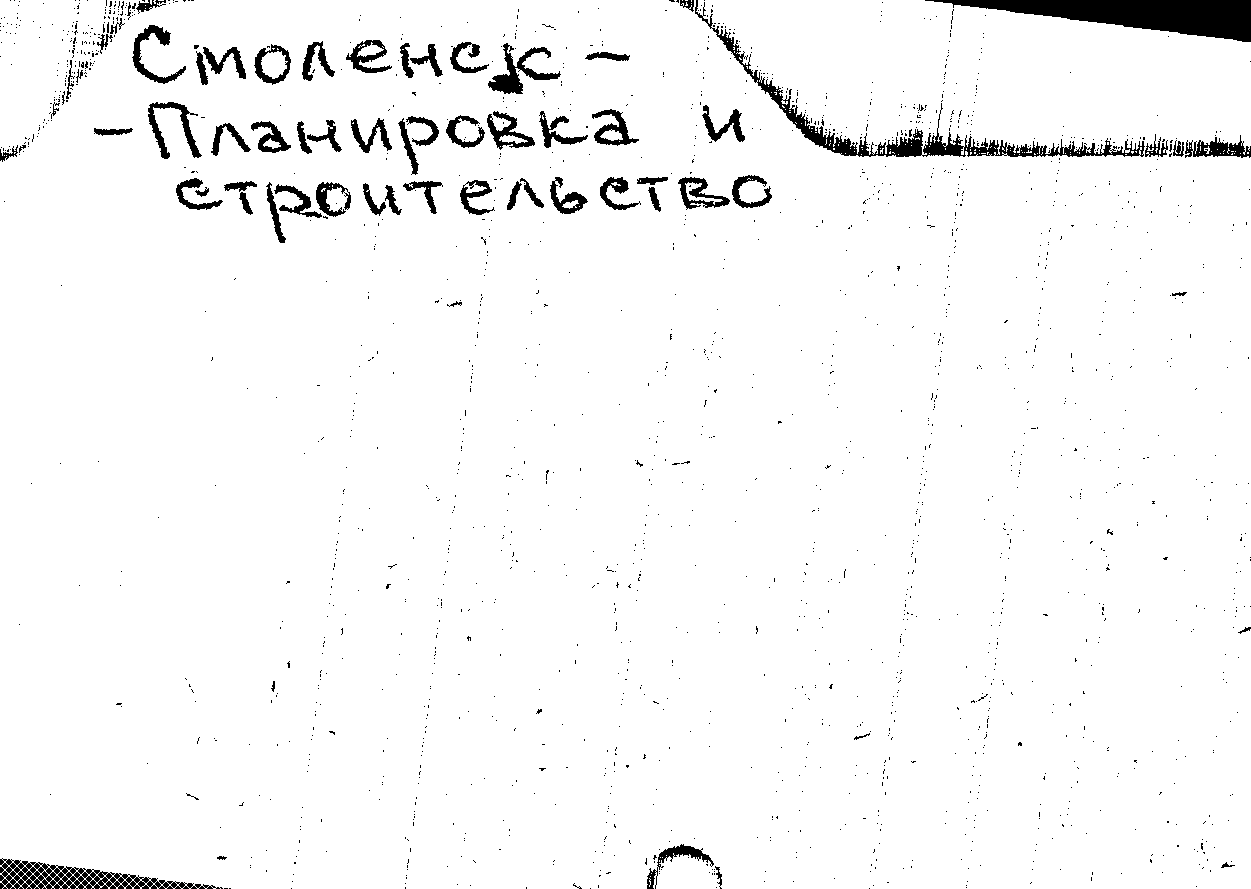 Смоленск -
- Планировка и
строительство